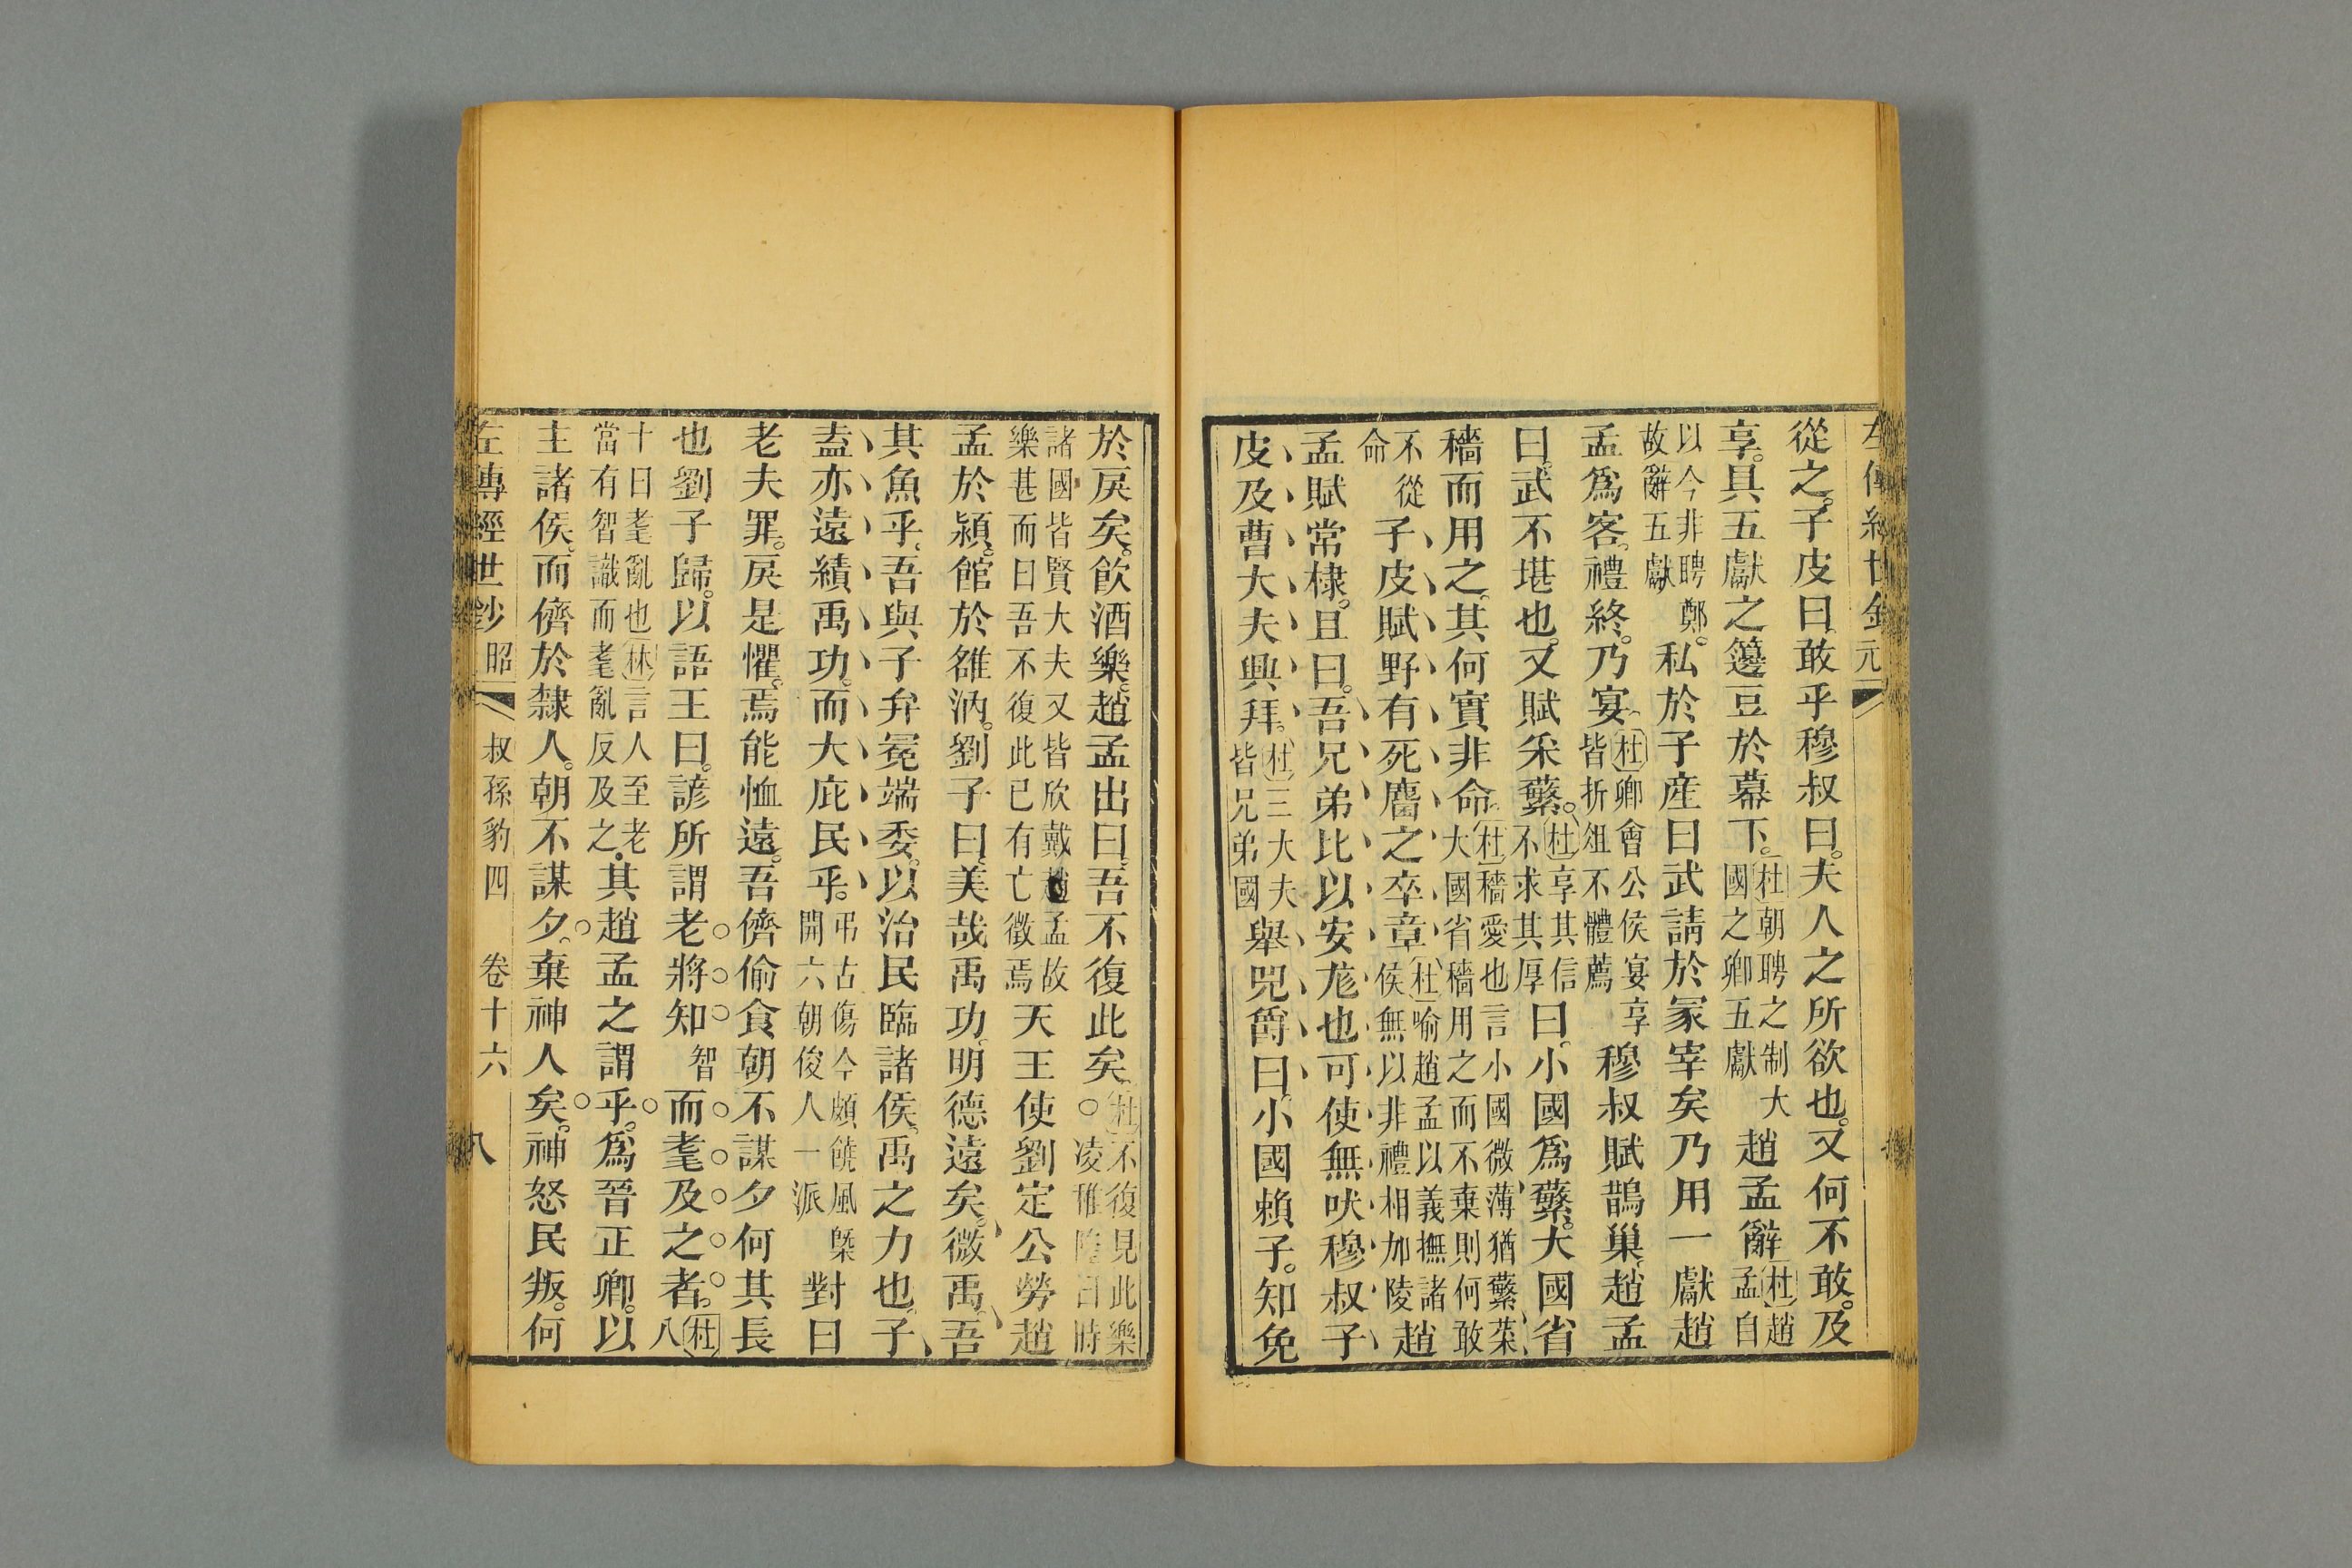 從之。子皮曰。敢乎穆叔曰。夫人之所欲也。又何不敢。及
享。具五獻之籩豆於幕下。杜朝聘之制大國之卿五獻趙孟辭杜趙孟自
以今非聘鄭。故辭五獻私於子產曰武請於冢宰矣乃用一獻趙
孟爲客。禮終。乃宴杜卿會公侯宴享皆折俎不體薦穆叔賦鵲巢趙孟
曰。武不堪也。又賦采蘩。杜享其信不求其厚曰。小國爲蘩。大國省
穡而用之。其何實非命。杜穡愛也言小國微薄猶蘩菜大國省穡用之而不棄則何敢
不從命子皮賦野有死麕之卒章杜喻趙孟以義撫諸侯無以非禮相加陵趙
孟賦常棣。且曰。吾兄弟比以安尨也可使無吠穆叔子
皮及曹大夫興拜。杜三大夫皆兄弟國舉兕爵曰。小國賴子。知免
於戾矣。飮酒樂。趙孟出曰。吾不復此矣。杜不復見此樂○凌稚隆曰時
諸國皆賢大夫又皆欣戴趙孟故樂甚而曰吾不復此已有亡徵焉天王使劉定公勞趙
孟於潁。館於雒汭。劉子曰。美哉禹功。明德遠矣。微禹。吾
其魚乎。吾與子弁冕端委。以治民臨諸侯。禹之力也。子
盍亦遠績禹功。而大庇民乎。弔古傷今頗饒風槩開六朝俊人一派對曰
老夫罪。戾是懼。焉能恤遠。吾儕偷食朝不謀夕何其長
也劉子歸。以語王曰。諺所謂老將知智而耄及之者。杜八
十曰耄亂也林言人至老當有智識而耄亂反及之其趙孟之謂乎。爲晉正卿。以
主諸侯。而儕於隸人。朝不謀夕。棄神人矣。神怒民叛。何
左傳經世鈔 昭 叔孫豹四 卷十六 八